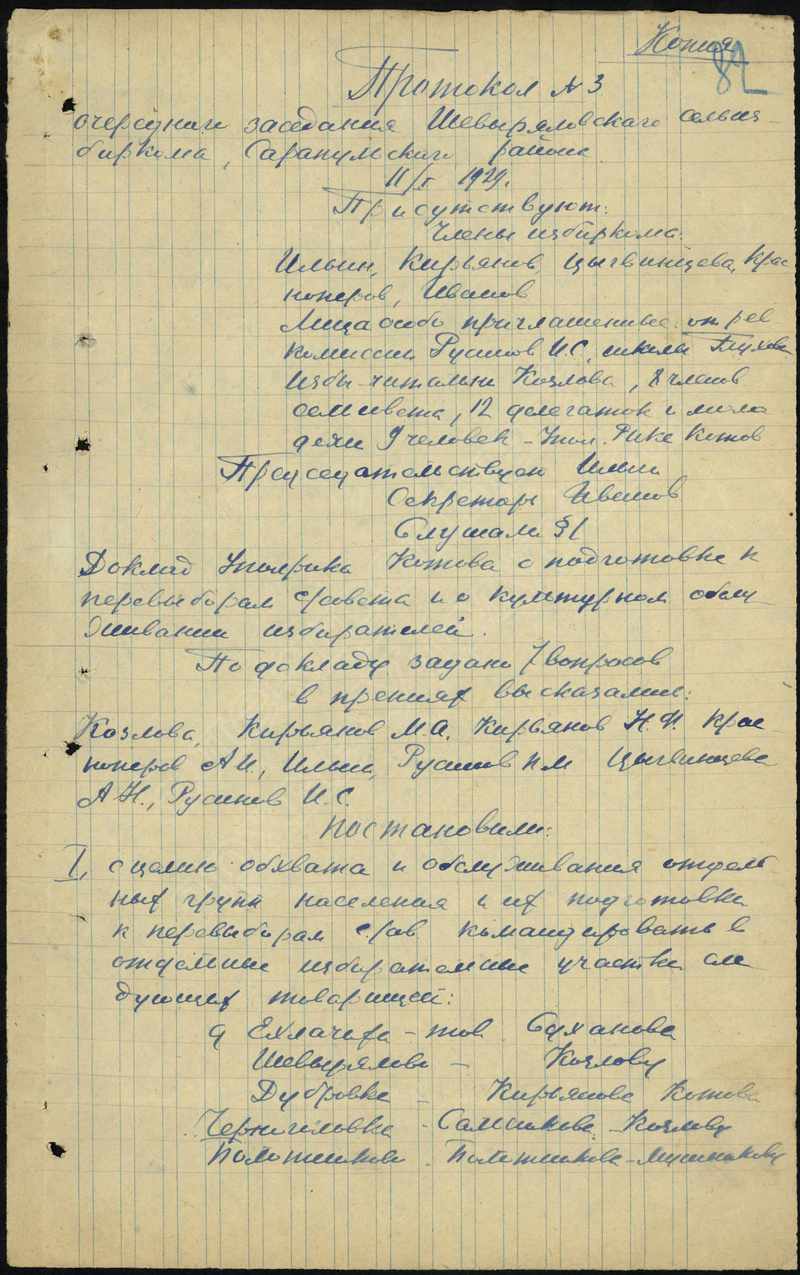 Копия
82
Протокол № 3
очередного заседания Шевыряловского сельиз-
биркома, Сарапульского района
11/I 1929.
Присутствуют:
Члены избиркома:
Ильин, Кирьянов, Цыгвинцева, Крас
ноперов, Иванов
Лица особо приглашенные: от рев
комиссии Русинов И.С., школы
избы-читальни Козлова, 8 членов
сельсовета, 12 делегаток и моло
дежи 9 человек - Упол. Рика Котов
Председательствует Ильин
Секретарь Иванов
Слушали § 1
Доклад Уполрика Котова о подготовке к
перевыборам с/совета и о культурном обслу
живании избирателей.
По докладу задано 7 вопросов
в прениях высказались:
Козлова, Кирьянов М.А. Кирьянов Н.Ф. Крас
ноперов А.И., Ильин, Русинов П.М. Цыгвинцева
А.Н., Русинов И.С.
Постановили:
I, с целью обхвата и обслуживания отдель
ных групп населения и их подготовки
к перевыборам с/сов командировать в
отдельные избирательные участки сле
дующих товарищей:
тов Суханова
Шевырялово - Козлову
Дубровка - Кирьянова Котова
Черногиловка - Козлову
Полотниково